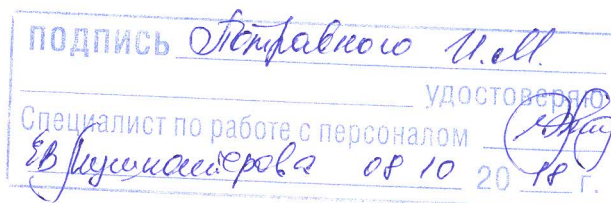 ПОДПИСЬ Потравного И.М.
удостоверяю
Специалист по работе с персоналом
ЕВ 08 10 20 18 г.